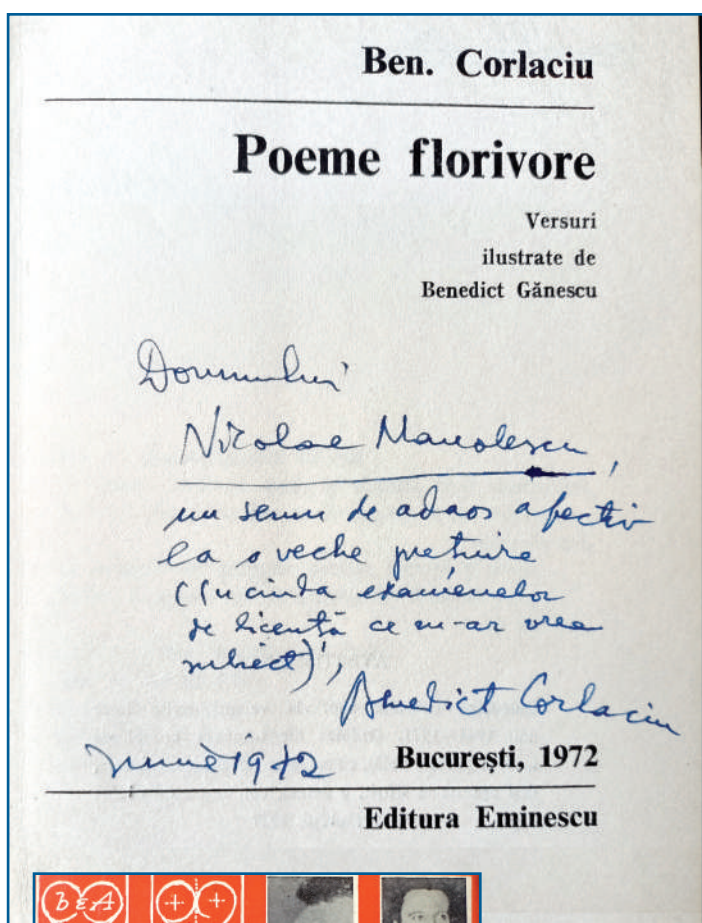 Ben. Corlaciu
Poeme florivore
Versuri
ilustrate de
Benedict Gănescu
Domnului
Nicolae Manolescu,
un semn de adaos afectiv
la o veche prețuire
(în ciuda examenelor
de licență ce m-ar vrea
subiect),
Benedict Corlaciu
iunie 1972
București, 1972
Editura Eminescu
B&A
+ +